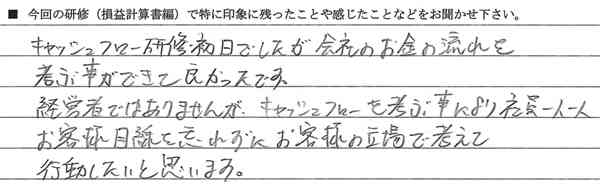 ■ 今回の研修（損益計算書編）で特に印象に残ったことや感じたことなどをお聞かせ下さい。
キャッシュフロー研修初日でしたが会社のお金の流れを
考ぶ事ができて良かったです。
経営者ではありませんが、キャッシュフローを考ぶ事により社員一人一人
お客様目線を忘れずにお客様の立場で考えて
行動したいと思います。